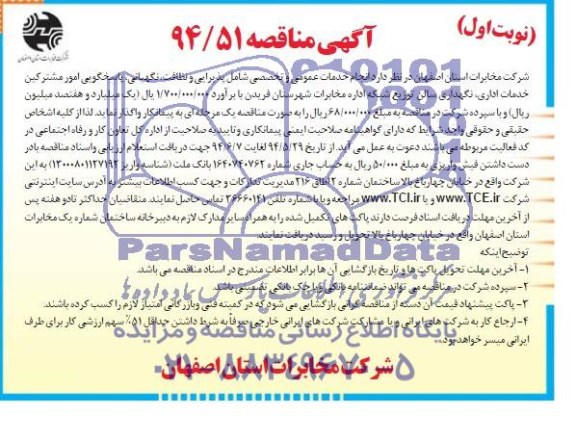 (نوبت اول)
آگهی مناقصه ۹۴/۵۱
شرکت مخابرات استان اصفهان
شرکت مخابرات استان اصفهان در نظر دارد انجام خدمات عمومی و تخصصی شامل پذیرایی و نظافت، نگهبانی، پاسخگویی امور مشترکین
خدمات اداری، نگهداری سالن توزیع شبکه اداره مخابرات شهرستان فریدن با برآورد ۱/۷۰۰/۰۰۰/۰۰۰ ریال (یک میلیارد و هفتصد میلیون
ریال) و با سپرده شرکت در مناقصه به مبلغ ۶۸/۰۰۰/۰۰۰ ریال را به صورت مناقصه یک مرحله ای به پیمانکار واگذار نماید. لذا از کلیه اشخاص
حقیقی و حقوقی واجد شرایط که دارای گواهینامه صلاحیت ایمنی پیمانکاری و تاییدیه صلاحیت از اداره کل تعاون کار و رفاه اجتماعی در
کد فعالیت مربوطه می باشند دعوت به عمل می آید. از تاریخ ۹۴/۵/۲۹ لغایت ۹۴/۶/۷ جهت دریافت استعلام ارزیابی واسناد مناقصه با در
دست داشتن فیش واریزی به مبلغ ۵۰/۰۰۰ ریال به حساب جاری شماره ۱۶۴۰۷۴۰۷۶۲ بانک ملت (شناسه واریز ۱۳۰۰۰۸۰۱۱۲۷۱۹۲) به این
شرکت واقع در خیابان چهارباغ بالا ساختمان شماره ۲ اطاق ۲۱۶ مدیریت تدارکات و جهت کسب اطلاعات بیشتر به آدرس سایت اینترنتی
شرکت www.TCE.ir و یا www.TCI.ir مراجعه و یا با شماره تلفن ۳۶۶۶۰۱۴۱ تماس حاصل نمایند. متقاضیان حداکثر تا دو هفته پس
از آخرین مهلت دریافت اسناد فرصت دارند پاکت های تکمیل شده را به همراه سایر مدارک لازم به دبیرخانه ساختمان شماره یک مخابرات
استان اصفهان واقع در خیابان چهارباغ بالا تحویل و رسید دریافت نمایند.
توضیح اینکه
۱- آخرین مهلت تحویل پاکت ها و تاریخ بازگشایی آن ها برابر اطلاعات مندرج در اسناد مناقصه می باشد.
۲- سپرده شرکت در مناقصه می تواند ضمانتنامه بانکی و یا چک بانکی تضمینی باشد.
۳- پاکت پیشنهاد قیمت آن دسته از مناقصه گرانی بازگشایی می شود که در کمیته فنی و بازرگانی امتیاز لازم را کسب کرده باشند.
۴- ارجاع کار به شرکت های ایرانی و یا مشارکت شرکت های ایرانی خارجی صرفاً به شرط داشتن حداقل ۵۱٪ سهم ارزشی کار برای طرف
ایرانی میسر خواهد بود.
شرکت مخابرات استان اصفهان
ParsNamadData
پایگاه اطلاع رسانی مناقصه و مزایده
۰۲۱-۸۸۳۴۹۶۷۰-۵